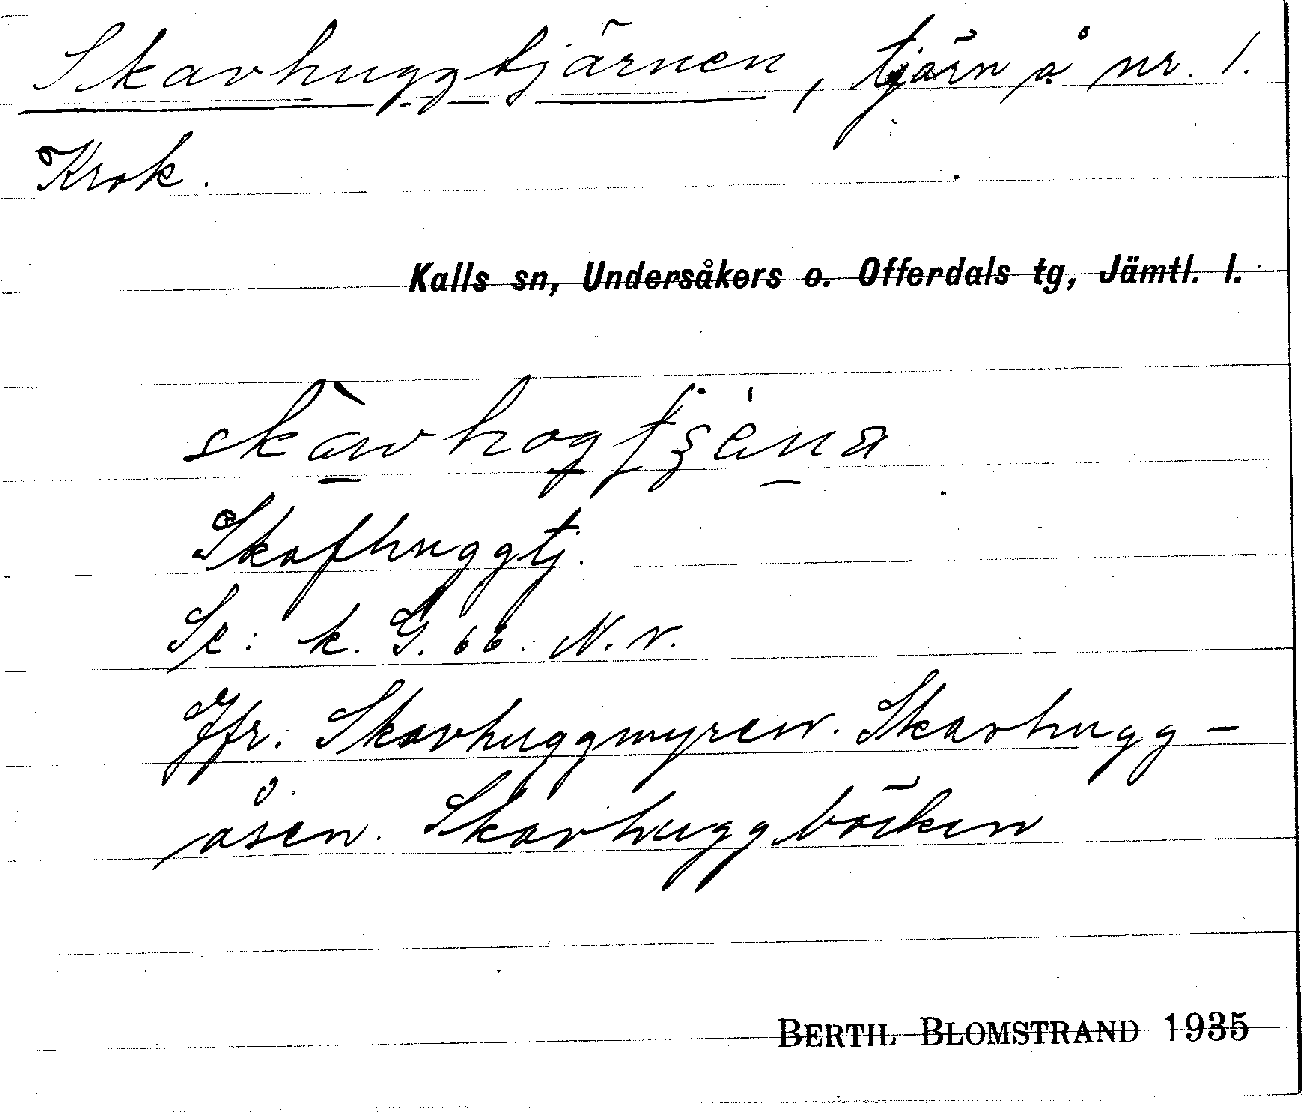 Skavhuggtjärnen, tjärn å nr. 1.
Krok.
Kalls sn, Undersåkers o. Offerdals tg, Jämtl. l.
Skafhuggtj.
Sr: k. G. 66. N.v.
Jfr. Skavhuggmyren. Skavhugg-
åsen. Skavhuggbäcken
BERTIL BLOMSTRAND 1935